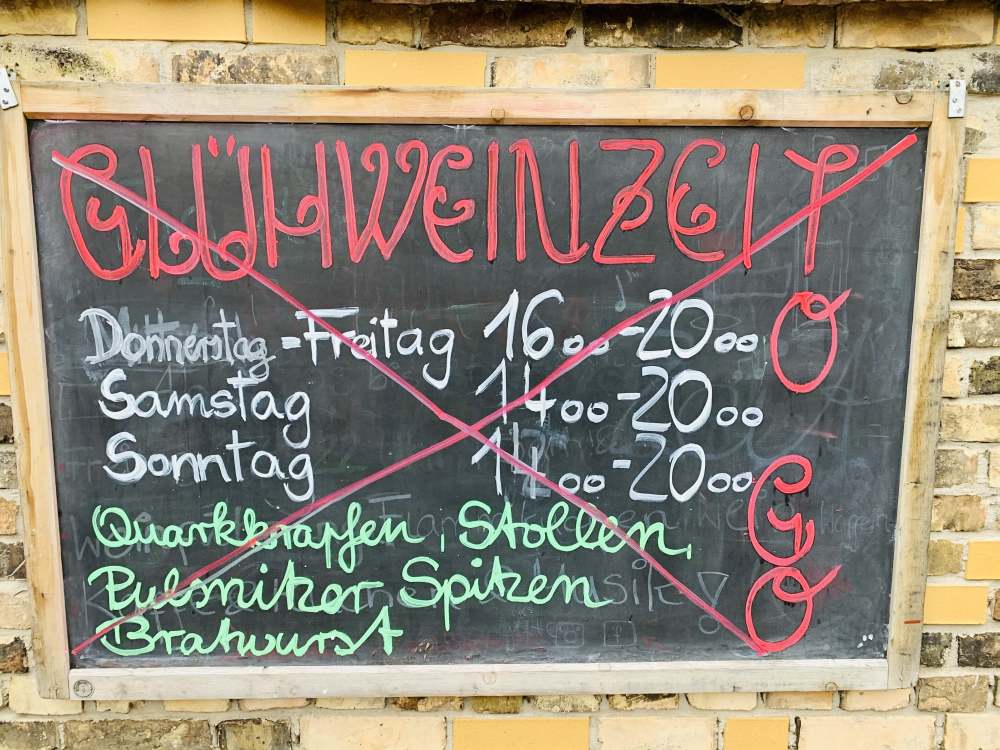 GLÜHWEINZEIT
Donnerstag - Freitag 16oo - 20oo
Samstag 14oo - 20oo
Sonntag 14oo - 20oo
Quarkkrapfen, Stollen,
Pulsnitzer Spitzen
Bratwurst
O
G
O